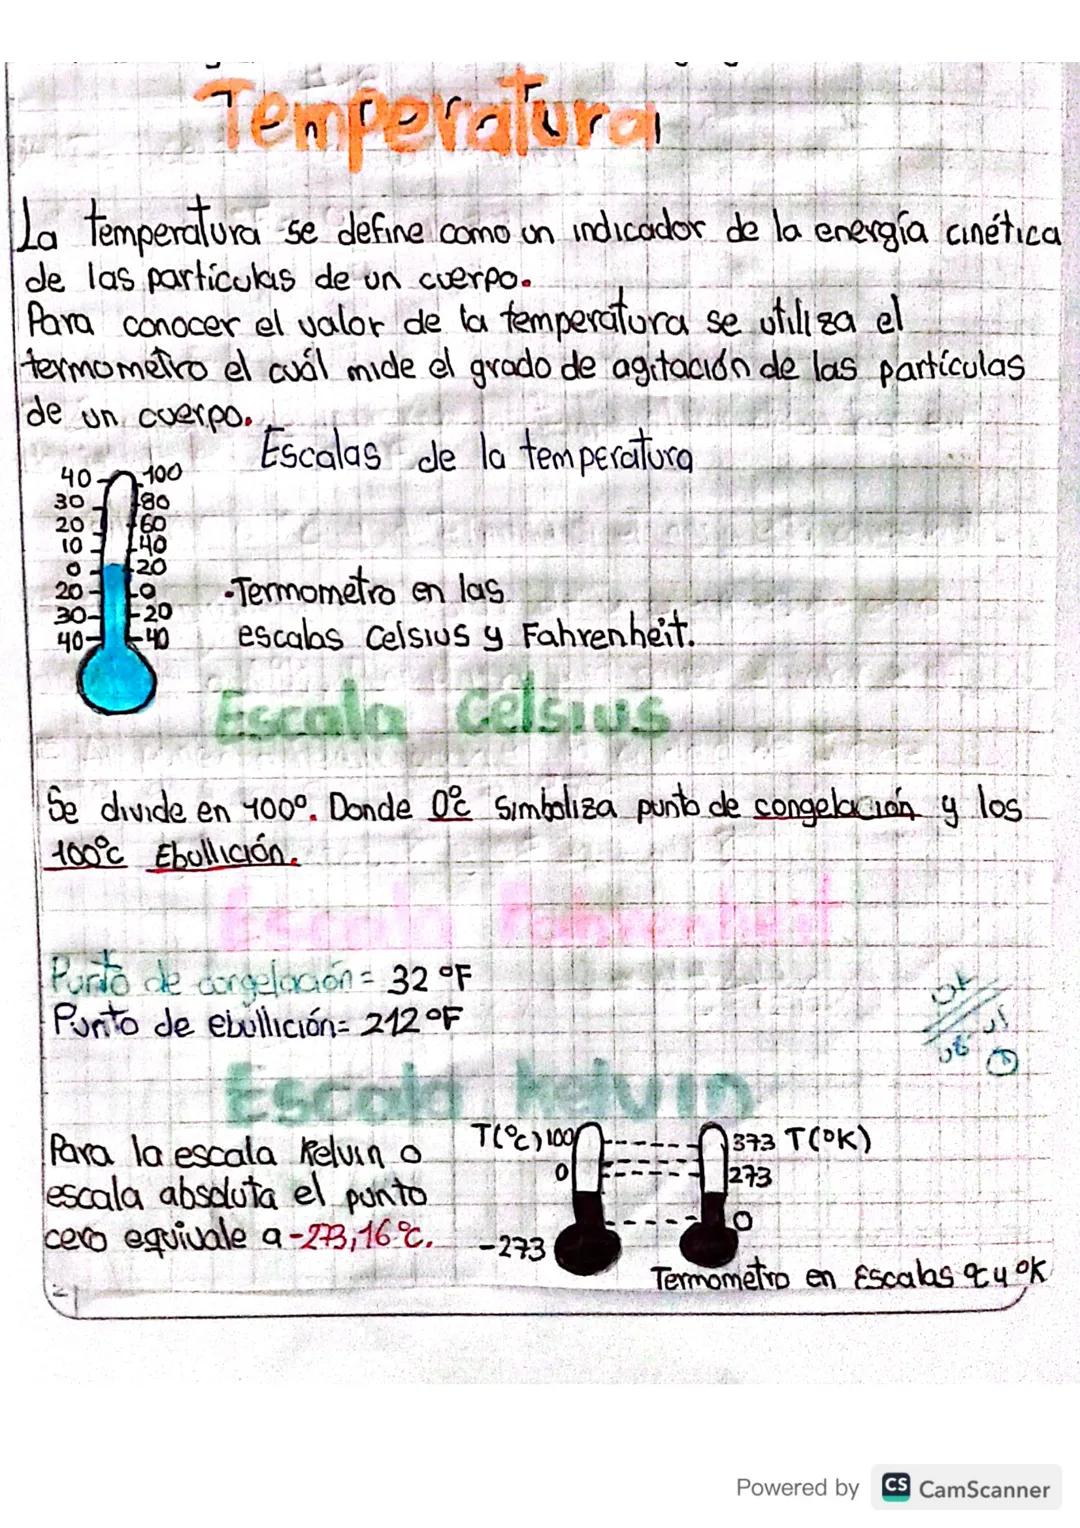 Temperatura
La temperatura se define como un indicador de la energía cinética
de las partículas de un cuerpo.
Para conocer el valor de la temperatura se utiliza el
termometro el cuál mide el grado de agitación de las partículas
de un cuerpo.
Escalas de la temperatura
40 100
30 80
20 60
10 40
0 20
20 0
30 -20
40 -40
•Termometro en las
escalas Celsius y Fahrenheit.
Escala Celsius
Se divide en 100°. Donde 0°c simboliza punto de congelación y los
100°c Ebullición.
Escala Fahrenheit
Punto de congelación= 32 °F
Punto de ebullición= 212°F
Escala Kelvin
Para la escala Kelvin o
escala absoluta el punto
cero equivale a -273,16°c.
T(°c) 100 373 T(°K)
0 273
-273 0
Termometro en Escalas °c y °K
Powered by CS CamScanner